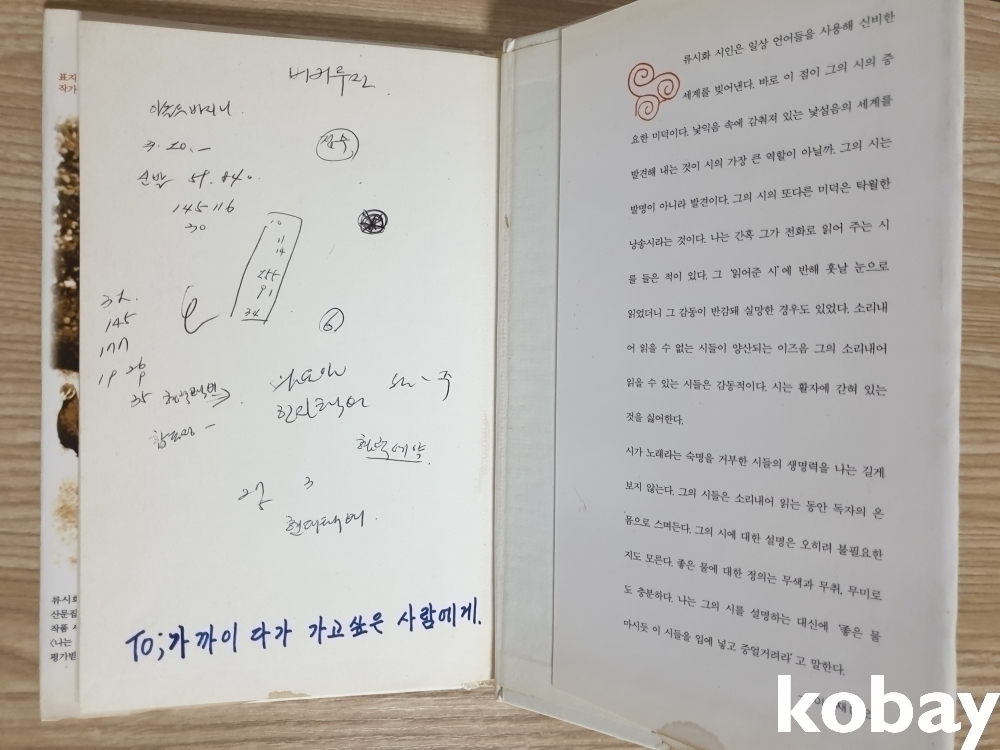 표지
작가
버버루만
3. 20. -
신발 59. 840.
145 116
30
점수
10
11
14
255
91
34
6
145
177
19 26
35
현대택배
예약
3
현대택배
TO;가까이 다가 가고싶은 사람에게.
류시화
산문집
작품
<나는
평가받
류시화 시인은 일상 언어들을 사용해 신비한
세계를 빚어낸다. 바로 이 점이 그의 시의 중
요한 미덕이다. 낯익음 속에 감춰져 있는 낯설음의 세계를
발견해 내는 것이 시의 가장 큰 역할이 아닐까. 그의 시는
발명이 아니라 발견이다. 그의 시의 또다른 미덕은 탁월한
낭송시라는 것이다. 나는 간혹 그가 전화로 읽어 주는 시
를 들은 적이 있다. 그 '읽어준 시'에 반해 훗날 눈으로
읽었더니 그 감동이 반감돼 실망한 경우도 있었다. 소리내
어 읽을 수 없는 시들이 양산되는 이즈음 그의 소리내어
읽을 수 있는 시들은 감동적이다. 시는 활자에 갇혀 있는
것을 싫어한다.
시가 노래라는 숙명을 거부한 시들의 생명력을 나는 길게
보지 않는다. 그의 시들은 소리내어 읽는 동안 독자의 온
몸으로 스며든다. 그의 시에 대한 설명은 오히려 불필요한
지도 모른다. 좋은 물에 대한 정의는 무색과 무취, 무미로
도 충분하다. 나는 그의 시를 설명하는 대신에 '좋은 물
마시듯 이 시들을 입에 넣고 중얼거려라'고 말한다.
kobay